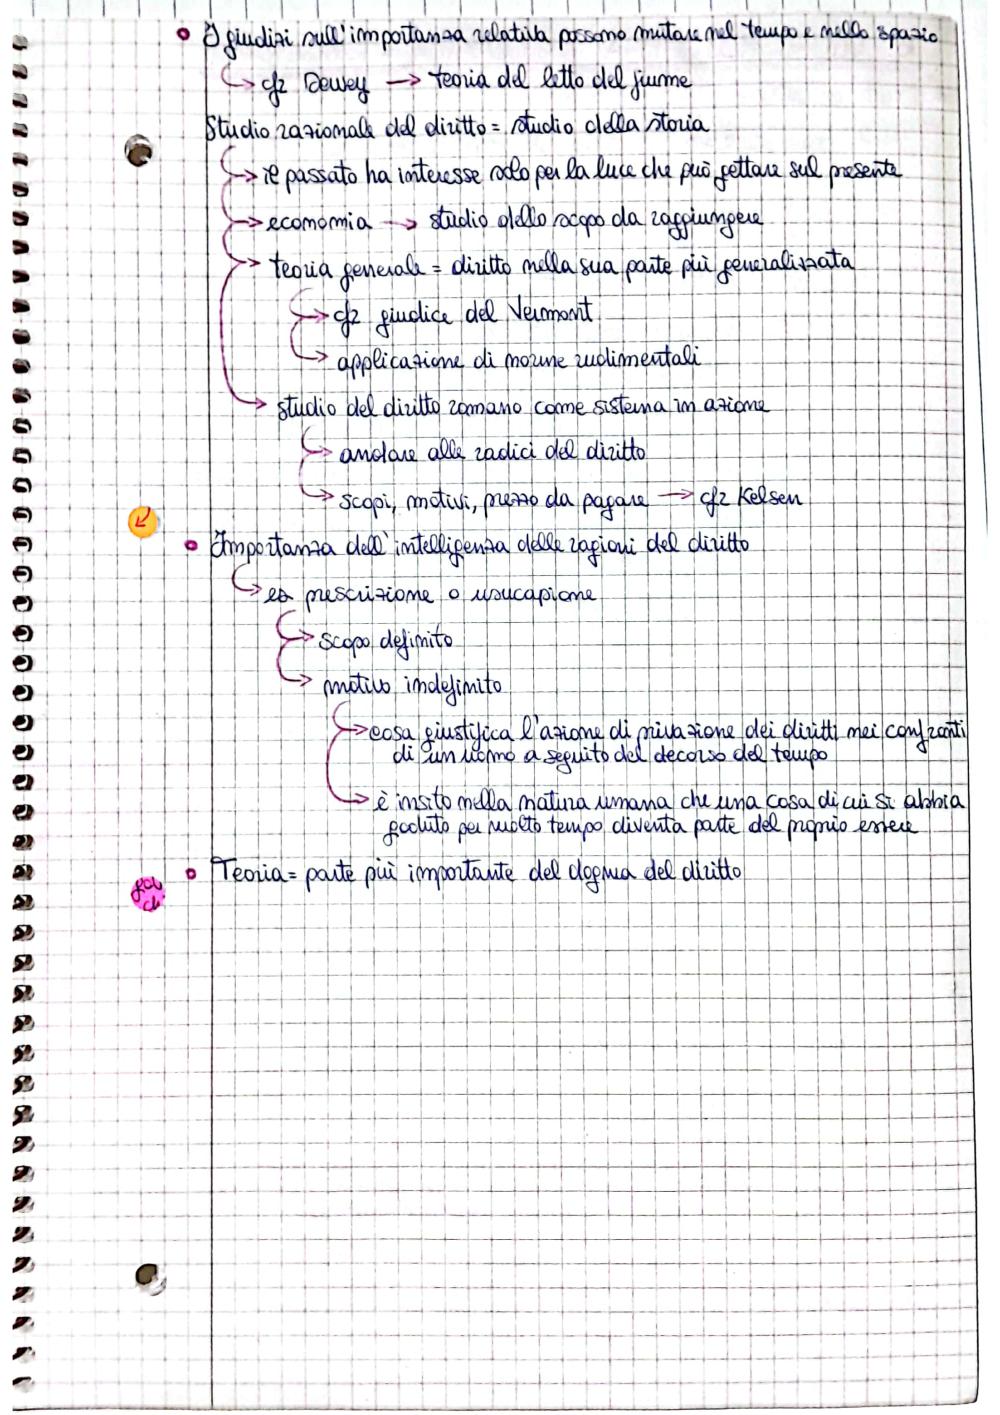 • I giudizi sull'importanza relativa possono mutare nel tempo e nello spazio
cfr Dewey → teoria del letto del fiume
Studio razionale del diritto = studio della storia
→ il passato ha interesse solo per la luce che può gettare sul presente
→ economia → studio dello scopo da raggiungere
→ teoria generale = diritto nella sua parte più generalizzata
→ cfr giudice del Vermont
→ applicazione di norme rudimentali
→ studio del diritto romano come sistema in azione
→ andare alle radici del diritto
→ scopi, motivi, prezzo da pagare → cfr Kelsen
• Importanza dell'intelligenza delle ragioni del diritto
→ es prescrizione o usucapione
→ scopo definito
→ motivo indefinito
→ cosa giustifica l'azione di privazione dei diritti nei confronti
di un uomo a seguito del decorso del tempo
→ è insito nella natura umana che una cosa di cui si abbia
goduto per molto tempo diventa parte del proprio essere
• Teoria = parte più importante del dogma del diritto